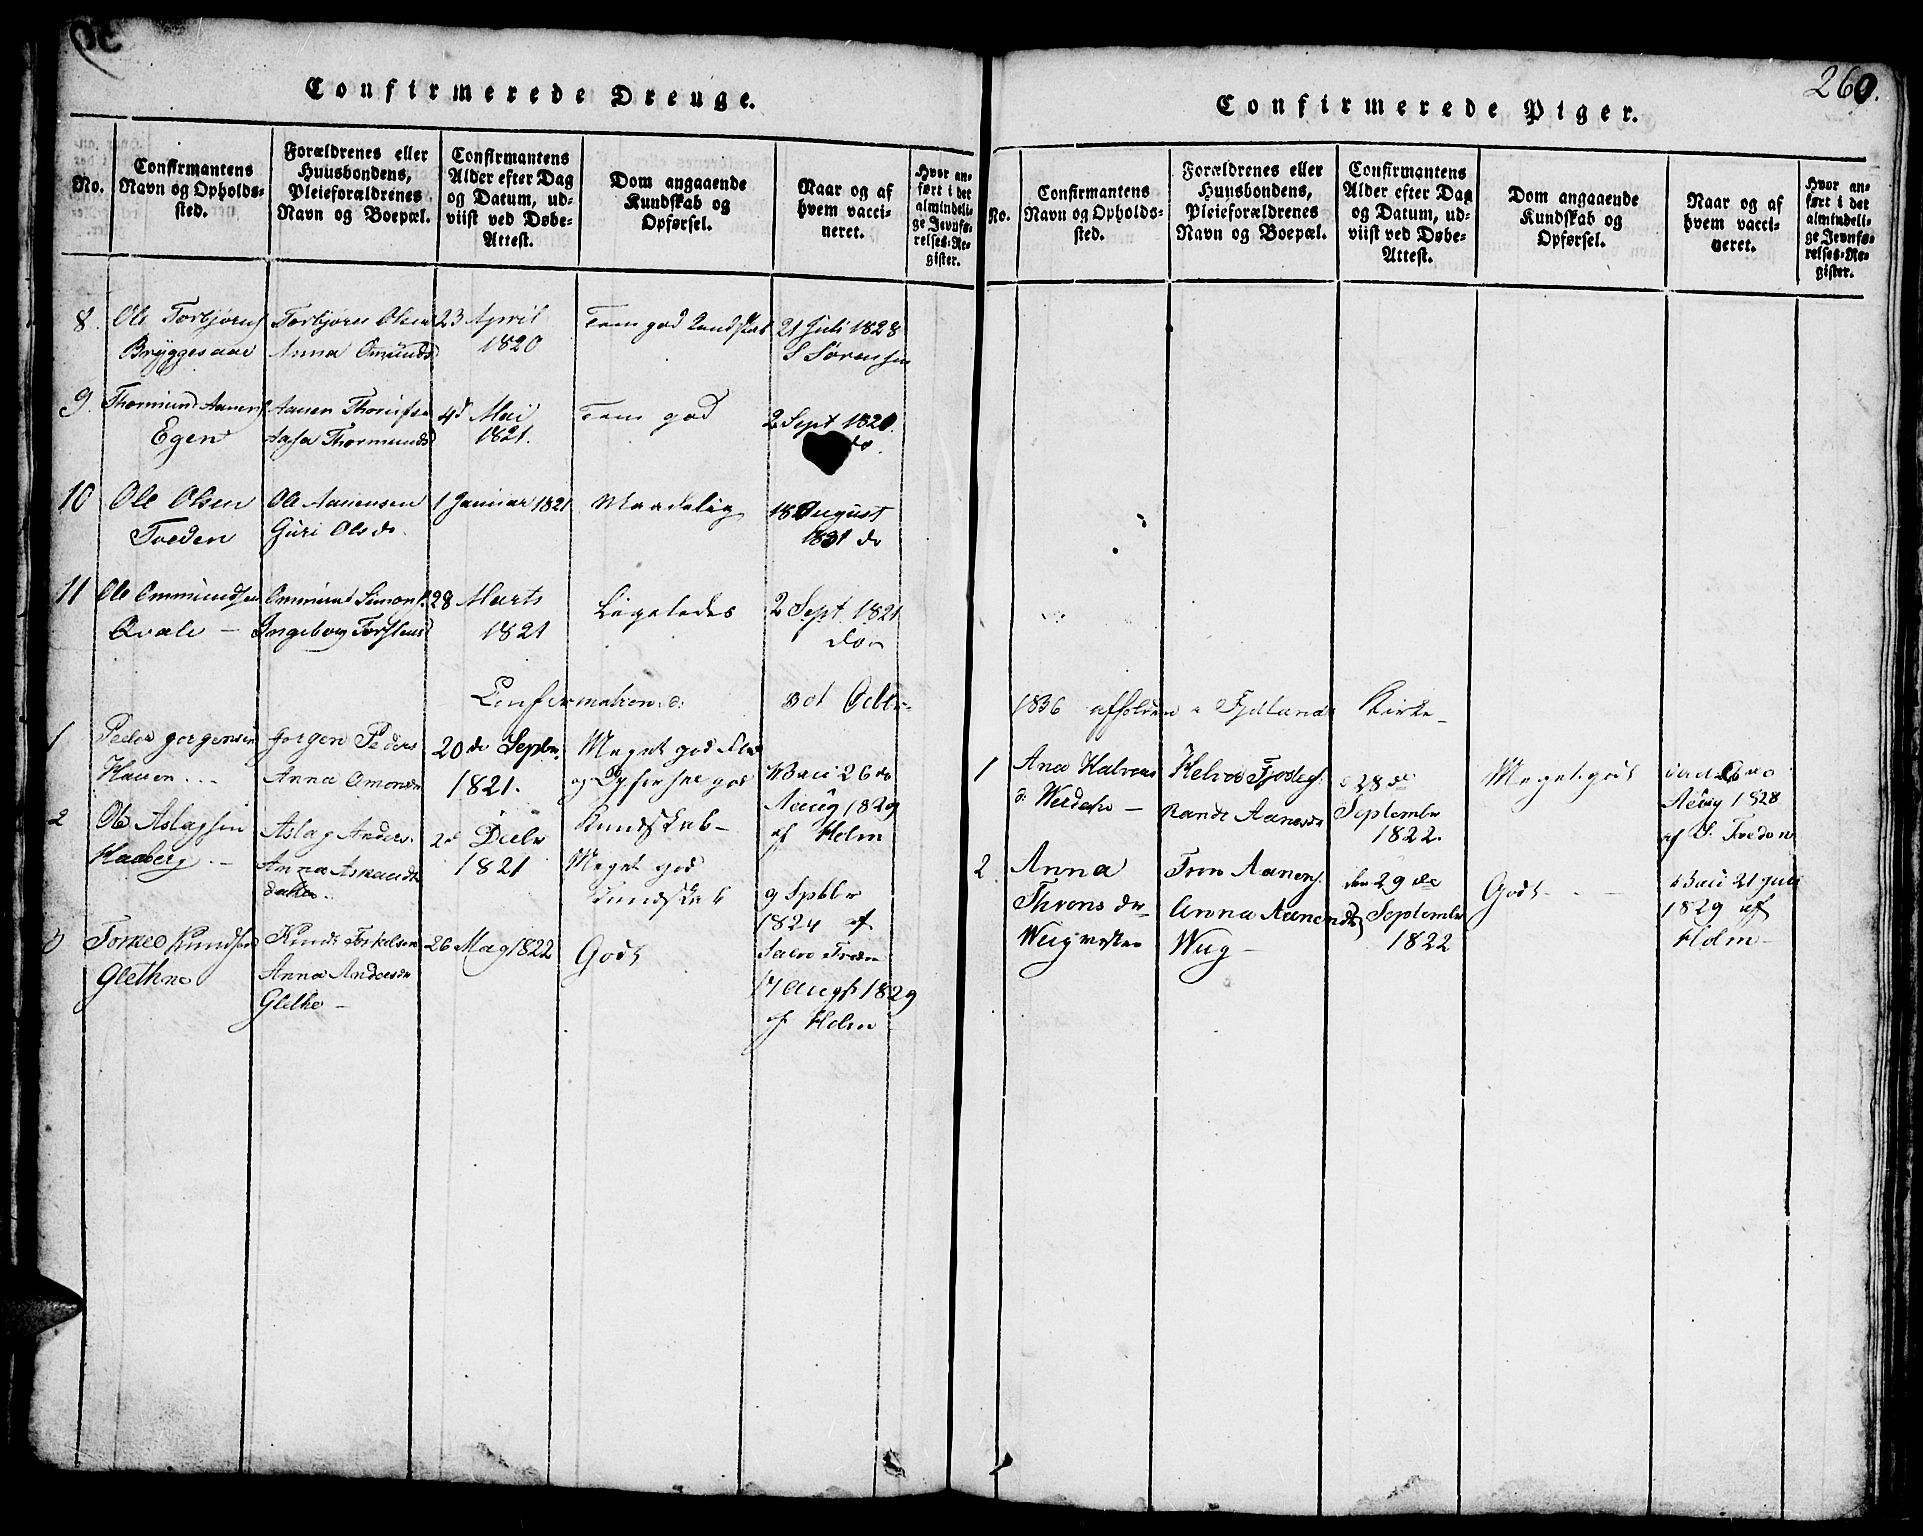 260.
Confirmerede Drenge.
No.
Confirmantens
Navn og Opholds-
sted.
Forældrenes eller
Huusbondens,
Pleieforældrenes
Navn og Boepæl.
Confirmantens
Alder efter Dag
og Datum, ud-
viist ved Døbe-
Attest.
Dom angaaende
Kundskab og
Opførsel.
Naar og af
hvem vacci-
neret.
Hvor an-
ført i det
almindeli-
ge Jevnfø-
relses-Re-
gister.
8.
Ole Torbjørns
Bryggesaae
Torbjørn Olsen
Anna Omunds
23 April
1820
Tem god Kundskab
21 Juli 1828
S Sørensen
9.
Thormund Aanens
Egen
Aanen
Aasa Thormunds
4d Mai
1821.
Tem god
2 Sept 1820.
do.
10
Ole Olsen
Tveden
Ole Aanensen
Guri Olsd.
1 Januar 1821
Maadelig
18 August
1831 do
11
Ole Ommundsen
Qvale -
Ommund Simons.
Ingeborg Torstens
28 Marts
1821
Ligeledes
2 Sept 1821
do
Confirmationen
Octbr
1
Peder Jørgensen
Hauen
Jørgen Peders
Anna Omonds
20de Septbr.
1821.
Meget god
og Opførsel god
26 do
Aaug 1829
af Holm
2
Ole Aslagsen
Haaberg
Aslag Anders.
Anna
datter.
2d Decbr
1821
Kundskab-
Meget god
Kundskab
9 Spbbr
1824 af
3
Torkel Knudsen
Glethne
Knudt Torkelsen
Anna Andersdr
Gletne -
26 May 1822
Godt
17 Augst 1829
af Holm
Confirmerede Piger.
No.
Confirmantens
Navn og Opholds-
sted.
Forældrenes eller
Huusbondens,
Pleieforældrenes
Navn og Boepæl.
Confirmantens
Alder efter Dag
og Datum, ud-
viist ved Døbe-
Attest.
Dom angaaende
Kundskab og
Opførsel.
Naar og af
hvem vacci-
neret.
Hvor an-
ført i det
almindeli-
ge Jevnfø-
relses-Re-
gister.
1836 afholden i Fjotlands Kirke-
1
Ana Halvors
dr
Helvor
Rande Aanensdr
28de
September
1822.
Meget godt
Aaug 1828
af O. Tveden
2
Anna
Throns dr
Tron Aanens.
Anna Aanensdtr
Wug -
den 29de
September
1822
Godt -
21 Juli
1829 af
Holm -